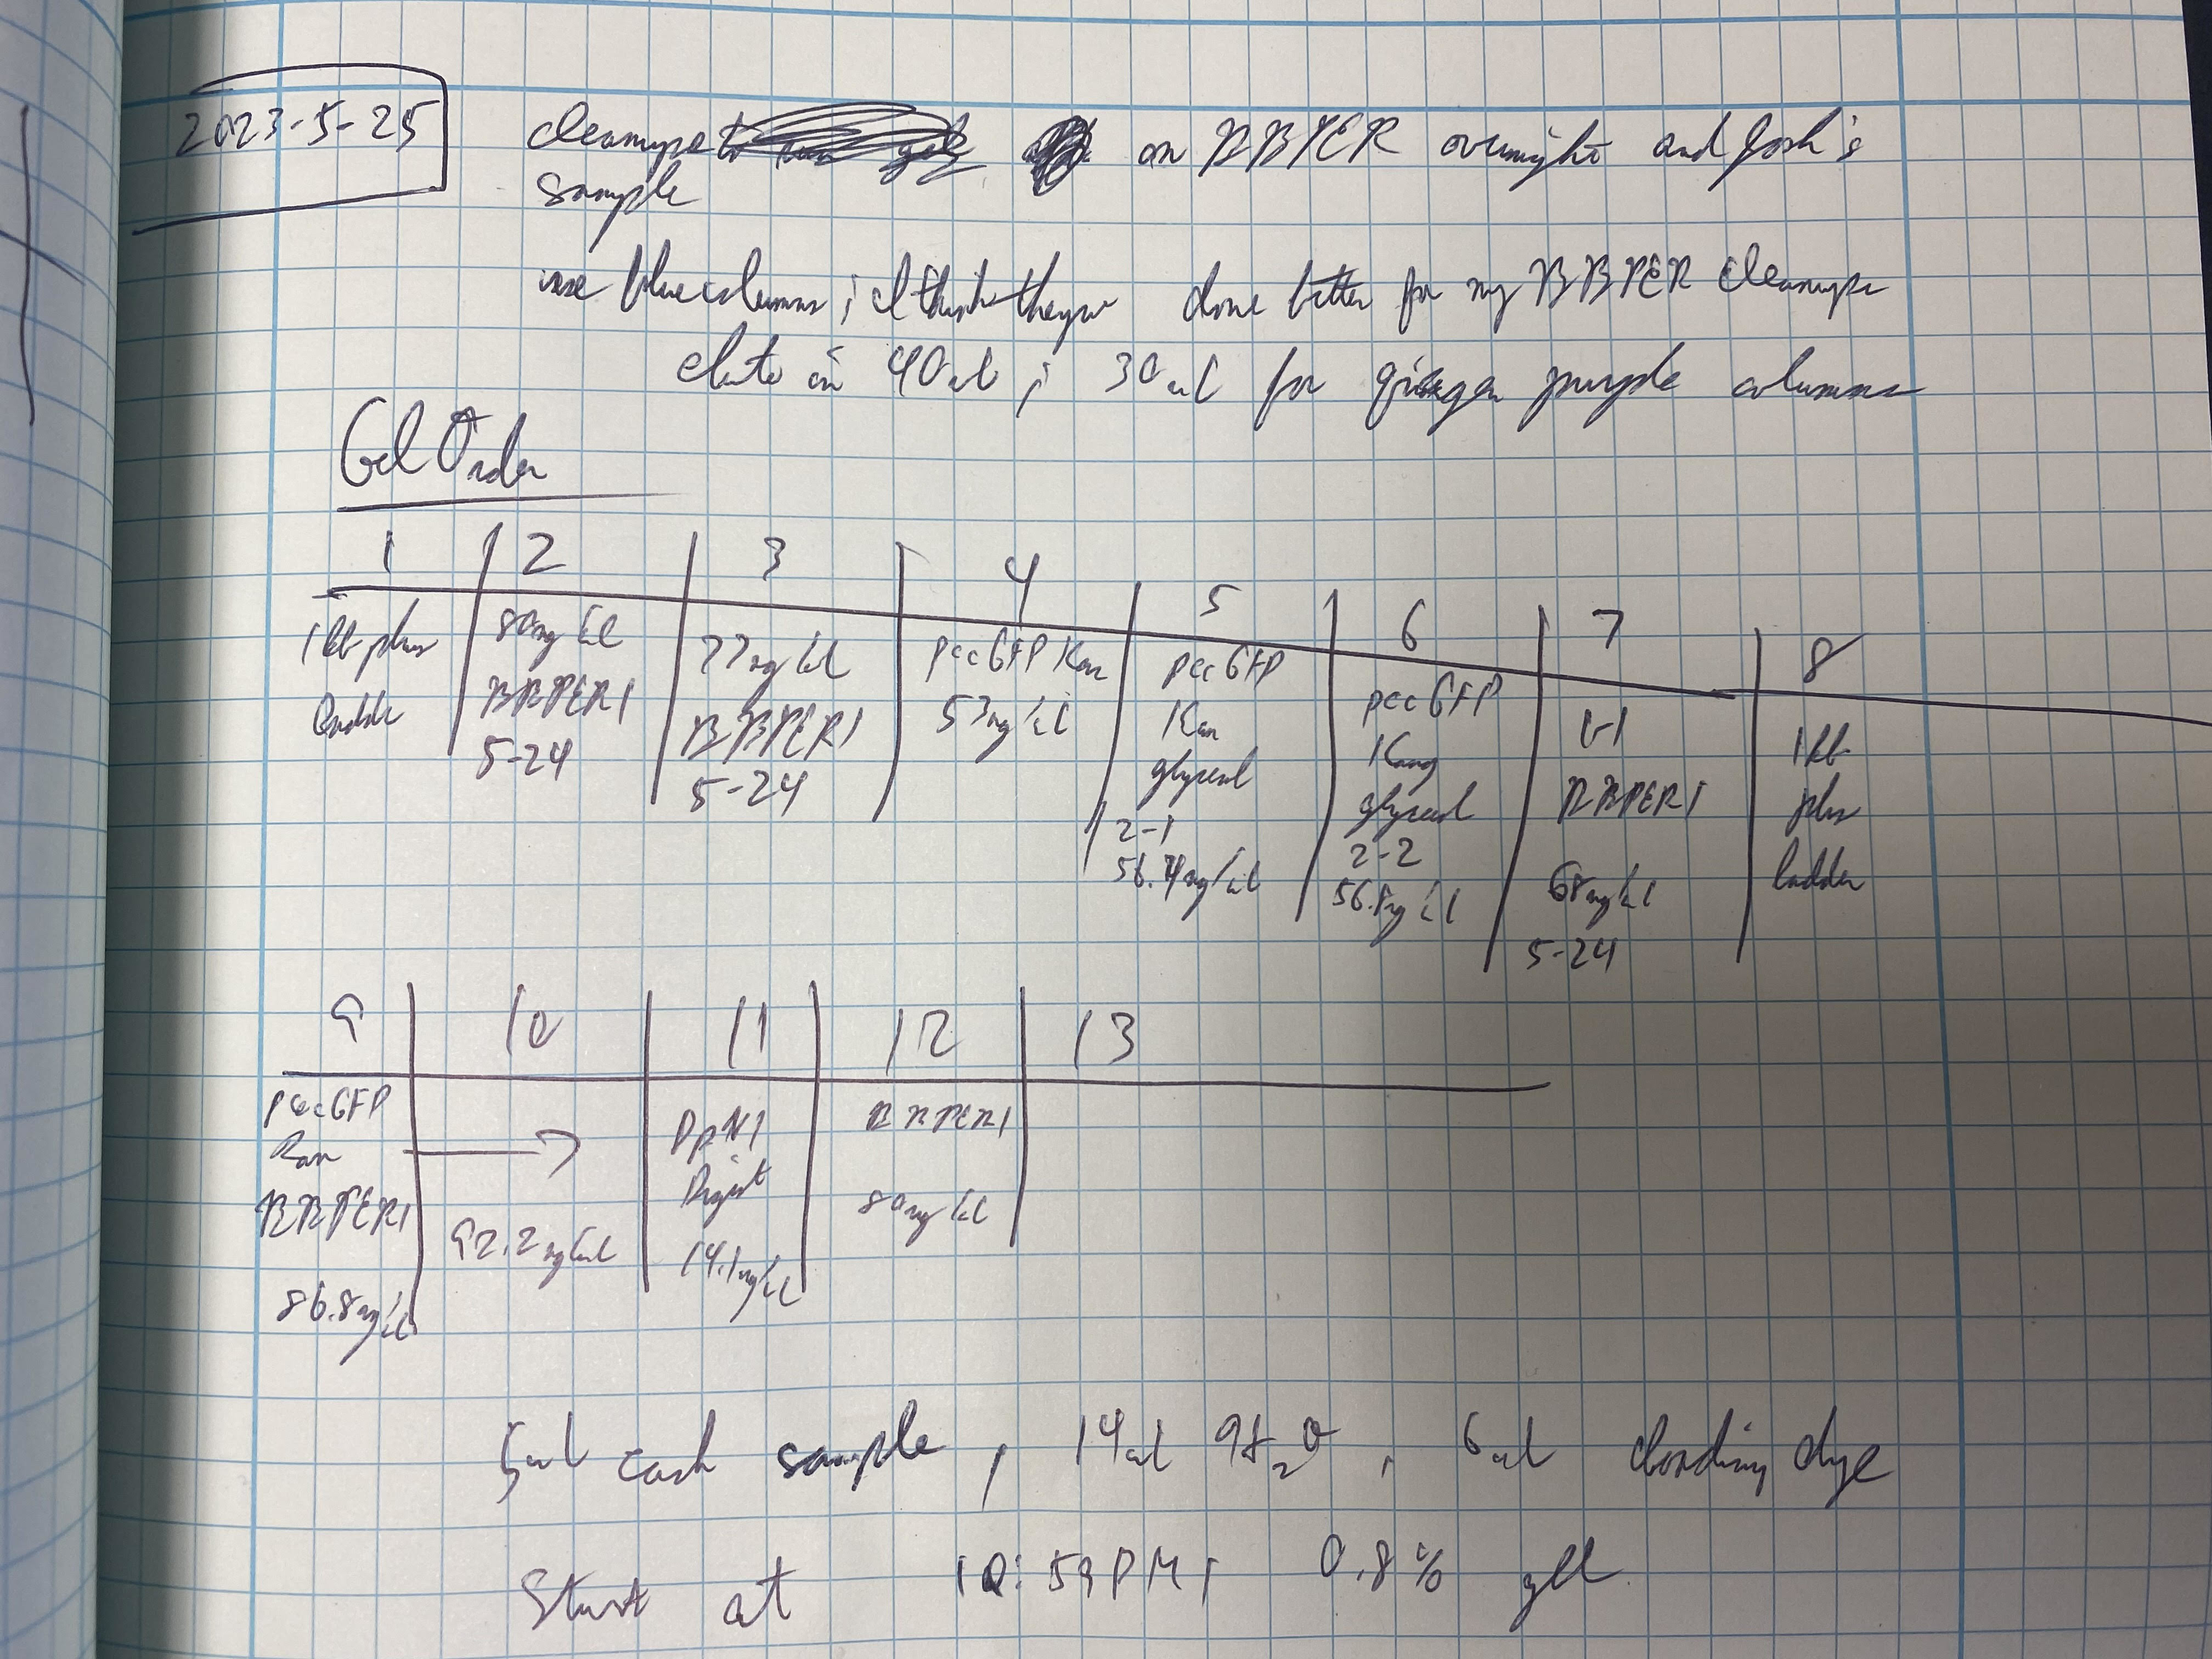 2023-5-25
cleanups on BBPER overnight and Josh's
sample
use blue columns; I think they've done better for my BBPER cleanups
elute in 40ul; 30ul for qiagen purple columns
Gel Order
1 2 3 4 5 6 7 8
1kb plus ladder
80ng/ul BBPER1 5-24
77ng/ul BBPER1 5-24
pccGFP Kan 53ng/ul
pccGFP Kan glycerol 2-1 56.4ng/ul
pccGFP Kan glycerol 2-2 56.8ng/ul
1-1 BBPER1 68ng/ul 5-24
1kb plus ladder
9 10 11 12 13
pccGFP Kan BBPER1 86.8ng/ul
→ 92.2ng/ul
DpN1 Digest 14.1ng/ul
BBPER1 80ng/ul
5ul each sample, 14ul H2O, 6ul loading dye
Start at 10:59PM; 0.8% gel